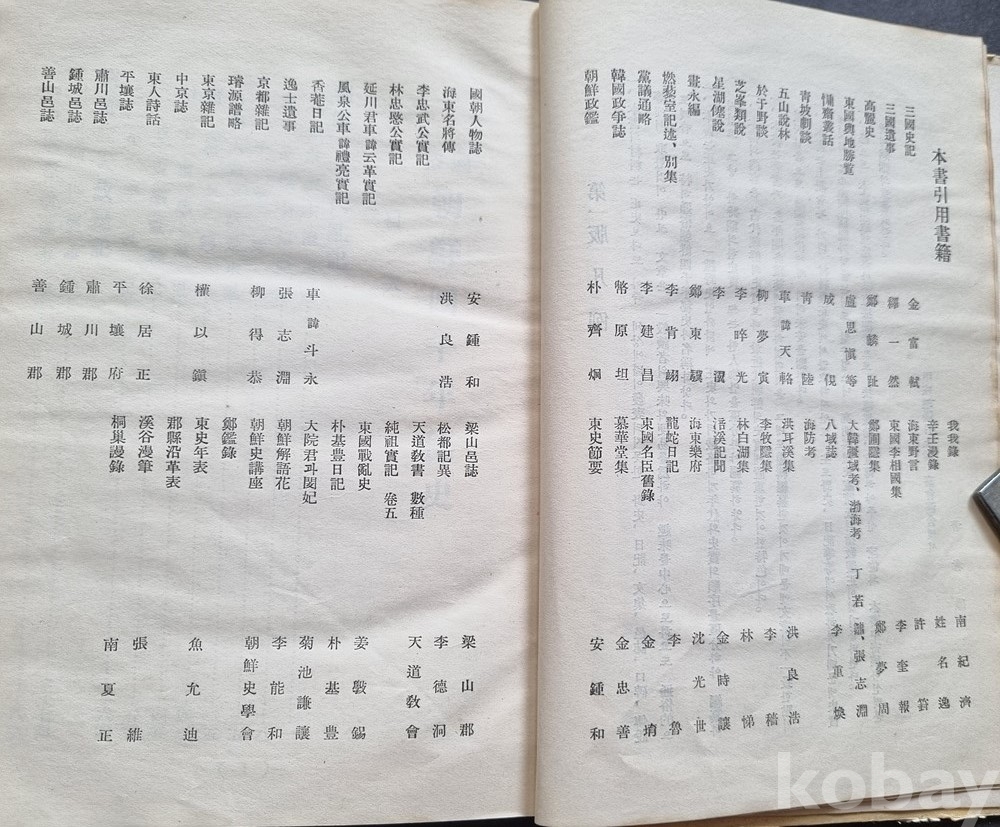 本書引用書籍
三國史記 金富軾
三國遺事 釋一然
高麗史 鄭麟趾
東國輿地勝覽 盧思愼等
慵齋叢話 成俔
靑坡劇談 靑陸
五山說林 車諱天輅
於于野談 柳夢寅
芝峯類說 李晬光
星湖僿說 李瀷
晝永編 鄭東驥
燃藜室記述、別集 李肯翊
黨議通略 李建昌
韓國政爭志 幣原坦
朝鮮政鑑 朴齊炯
我我錄 南紀濟
辛壬漫錄 姓名逸
海東野言 許篈
東國李相國集 李奎報
鄭圃隱集 鄭夢周
大韓疆域考、渤海考 丁若鏞、張志淵
八域誌 李重煥
海防考
洪耳溪集 洪良浩
李牧隱集 李穡
林白湖集 林悌
浯溪記聞 金時讓
海東樂府 沈光世
龍蛇日記 李魯
東國名臣舊錄 金堉
慕華堂集 金忠善
東史節要 安鍾和
國朝人物誌 安鍾和
海東名將傳 洪良浩
李忠武公實記
林忠愍公實記
延川君車諱云革實記
風泉公車諱禮亮實記
香菴日記 車諱斗永
逸士遺事 張志淵
京都雜記 柳得恭
璿源譜略
東京雜記 權以鎭
中京誌
東人詩話 徐居正
平壤誌 平壤府
肅川邑誌 肅川郡
鍾城邑誌 鍾城郡
善山邑誌 善山郡
梁山邑誌 梁山郡
松都記異 李德泂
天道敎書 數種 天道敎會
純祖實記 卷五
東國戰亂史 姜斅錫
朴基豊日記 朴基豊
大院君과閔妃 菊池謙讓
朝鮮解語花 李能和
朝鮮史講座 朝鮮史學會
鄭鑑錄
東史年表 魚允迪
郡縣沿革表
溪谷漫筆 張維
桐巢謾錄 南夏正
kobay